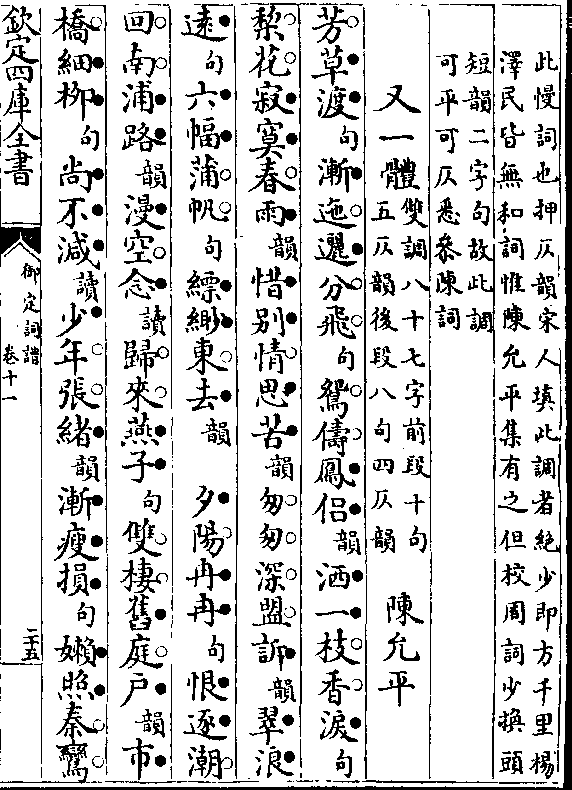 此慢詞也押仄韻宋人填此調者絶少即方千里楊
澤民皆無和詞惟陳允平集有之但校周詞少換頭
短韻二字句故此調
可平可仄悉參陳詞
又一體雙調八十七字前段十句
五仄韻後段八句四仄韻 陳允平
芳草渡句漸迤邐分飛句鴛儔鳳侶韻洒一枝香淚句
梨花寂寞春雨韻惜别情思苦韻匆匆深盟訴韻翠浪
逺句六幅蒲帆句縹緲東去韻 夕陽冉冉句恨逐潮
回南浦路韻漫空念讀歸來燕子句雙棲舊庭户韻市
橋細柳句尚不減讀少年張緒韻漸瘦損句嬾照秦鸞
欽定四庫全書 御定詞譜
卷十一 二十五